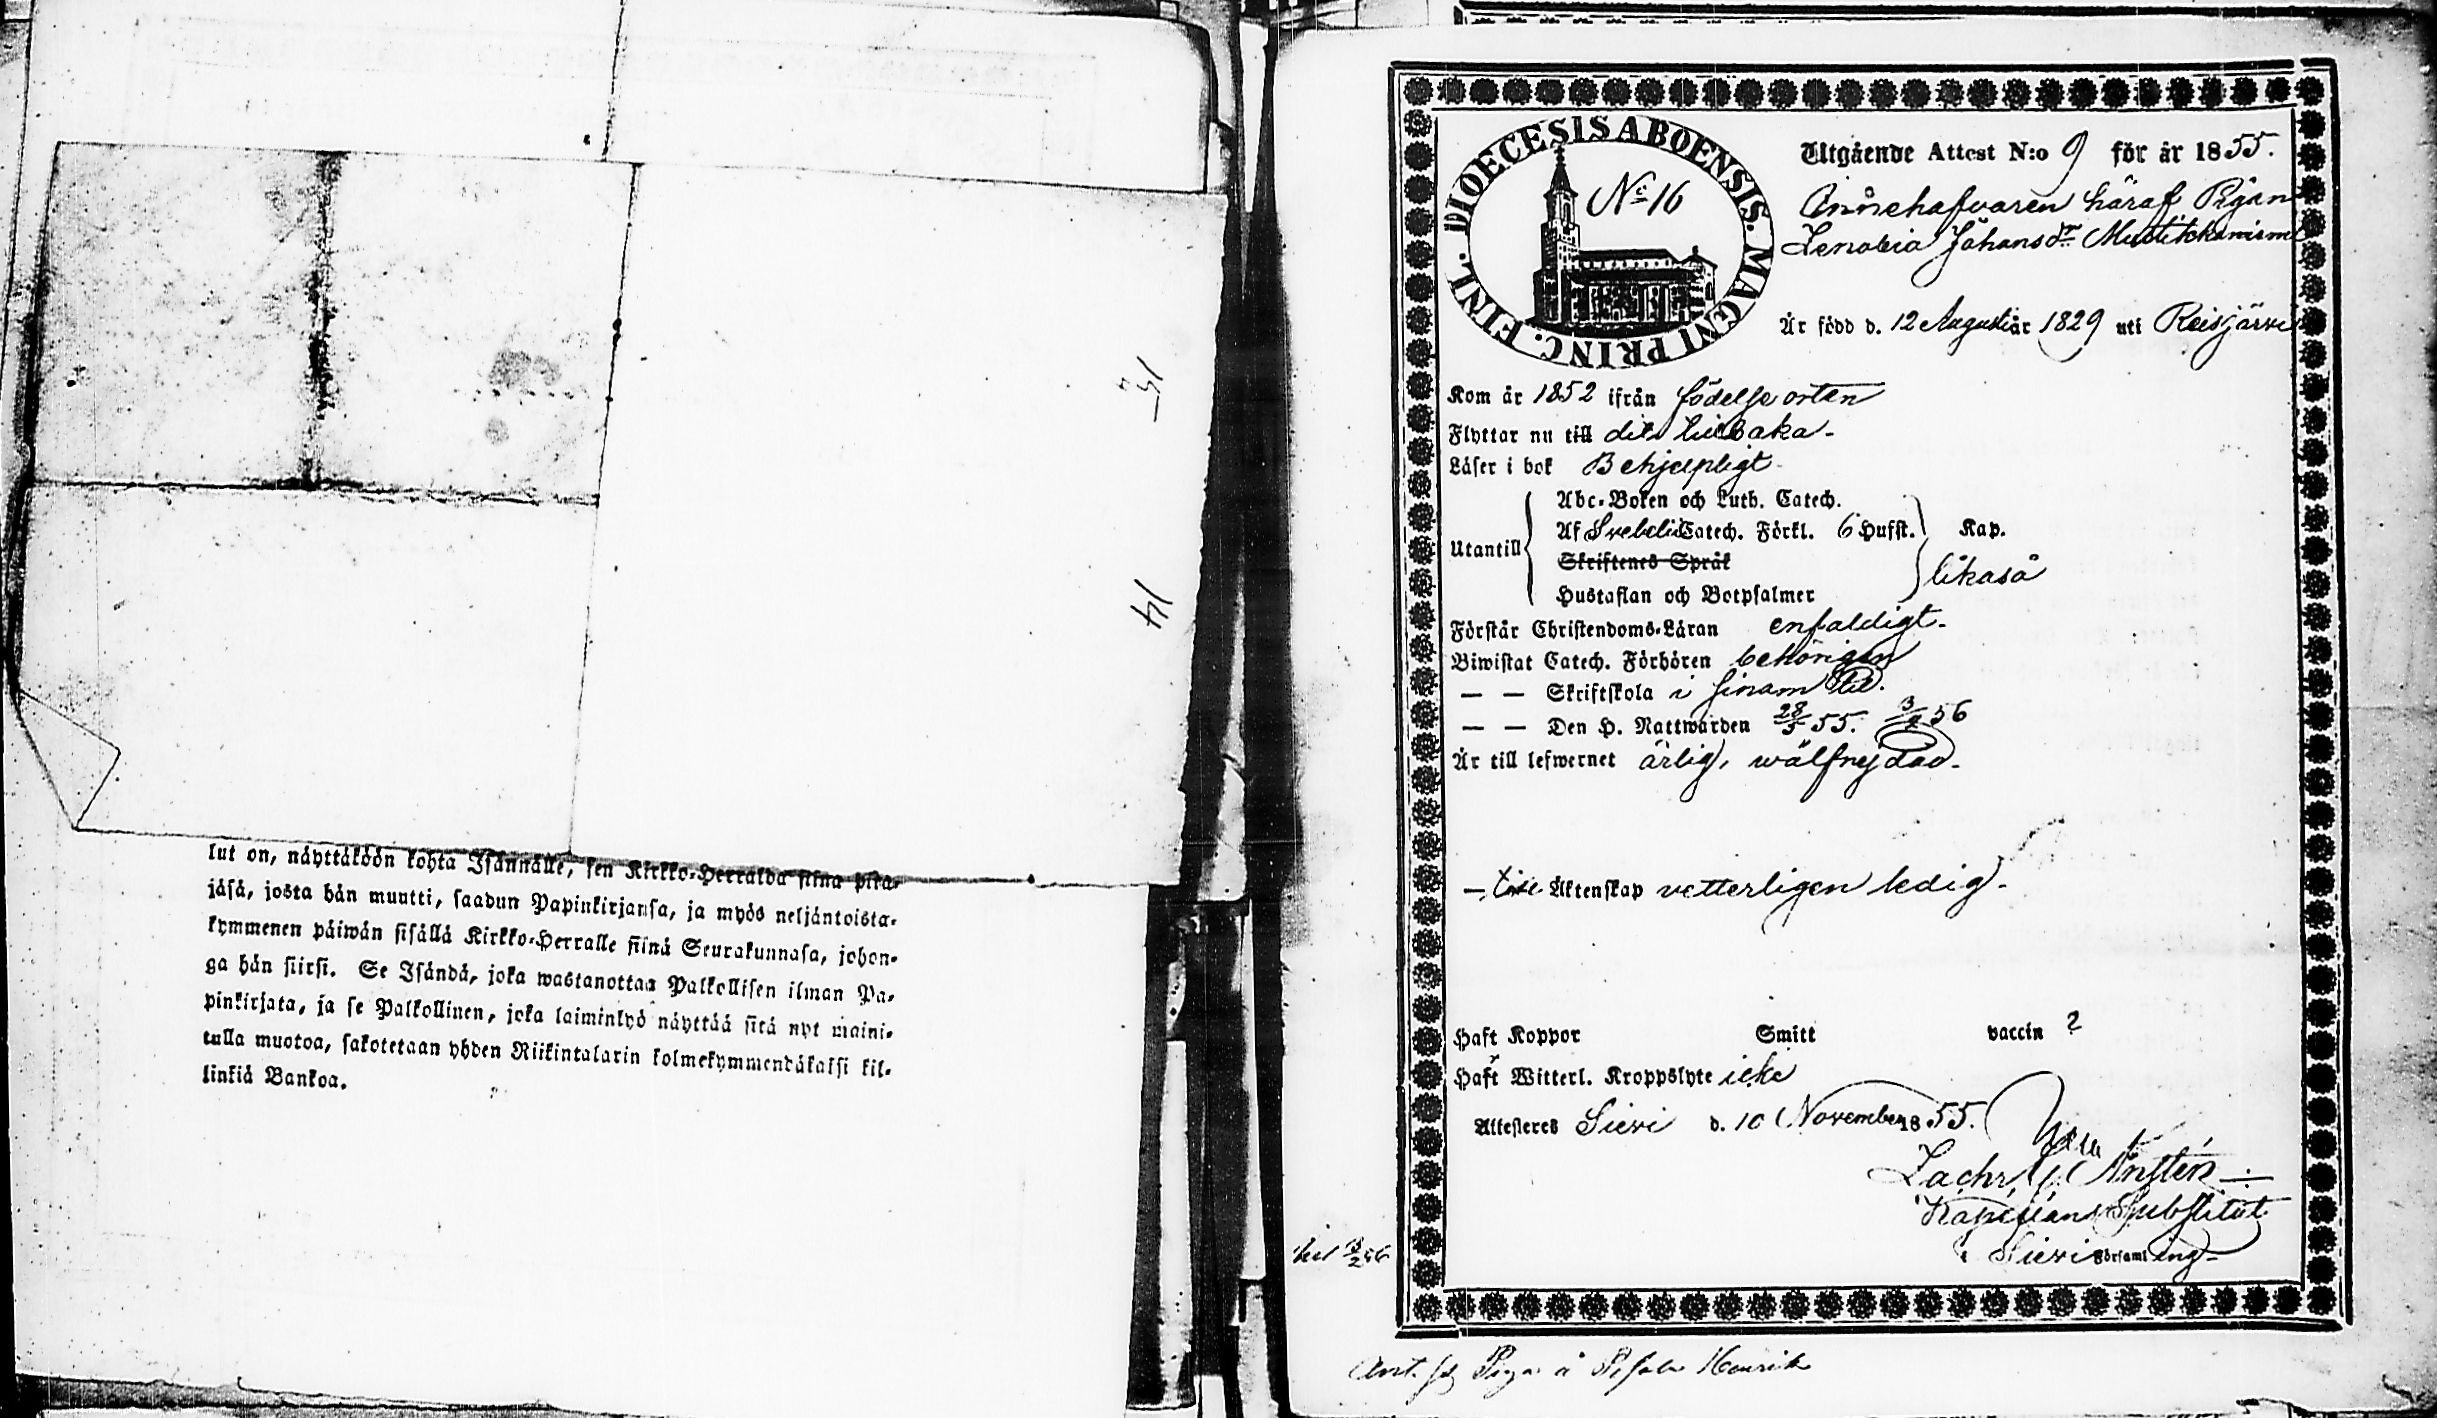 15
14
lut on, näyttäköön kohta Isännälle, sen Kirkko-Herralda siinä pitä-
jäsä, josta hän muutti, saadun Papinkirjansa, ja myös neljäntoista-
kymmenen päiwän sisällä Kirkko-Herralle siinä Seurakunnasa, johon-
ga hän siirsi. Se Isändä, joka wastanottaa Palkollisen ilman Pa-
pinkirjata, ja se Palkollinen, joka laiminlyö näyttää sitä nyt maini-
tulla muotoa, sakotetaan yhden Riikintalarin kolmekymmendäkaksi kil-
linkiä Bankoa.
DIOECESIS ABOENSIS. MAGNI PRINC. FINL.
No 16
Utgående Attest N:o 9 för år 1855.
Innehafvaren häraf Pigan
Johansdr
Är född d. 12 Augusti år 1829 uti Reisjärvi
Kom år 1852 ifrån födelse orten
Flyttar nu till dit tillbaka.
Läser i bok Behjelpligt
Utantill
Abc-Boken och Luth. Catech.
Af Svebelii Catech. Förkl. 6 Hufst. Kap.
Skriftenes Språk
Hustaflan och Botpsalmer
likaså
Förstår Christendoms-Läran enfaldigt.
Biwistat Catech. Förhören behörigen
— — Skriftskola i sinom tid.
— — Den H. Nattwarden 28/5 55. 56
Är till lefwernet ärlig, wälfrejdad.
— till Äktenskap vetterligen ledig.
Haft Koppor Smitt vaccin ?
Haft Witterl. Kroppslyte icke
Attesteres Sievi d. 10 November 1855.
Zachr.
Kapellans Substitut
i Sievi Församling
56
Henrik